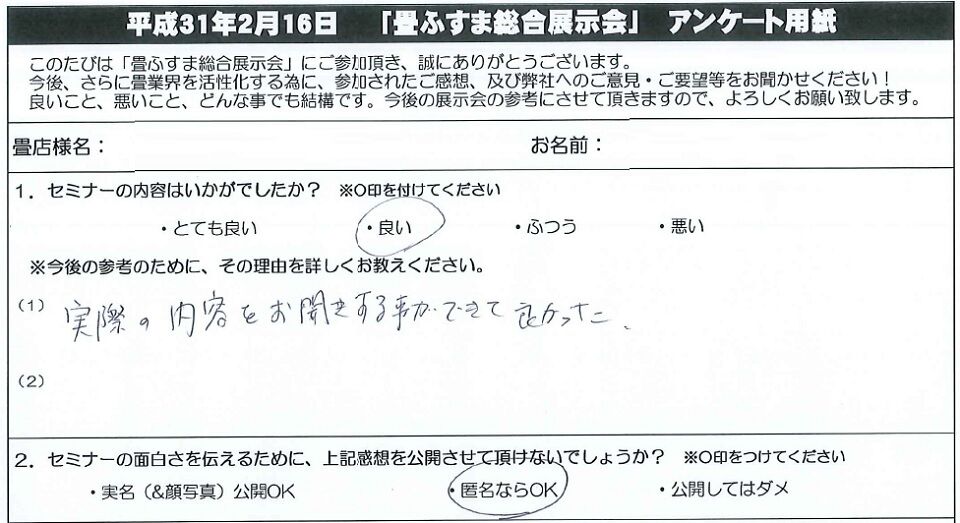 平成31年2月16日 「畳ふすま総合展示会」 アンケート用紙
このたびは「畳ふすま総合展示会」にご参加頂き、誠にありがとうございます。
今後、さらに畳業界を活性化する為に、参加されたご感想、及び弊社へのご意見・ご要望等をお聞かせください！
良いこと、悪いこと、どんな事でも結構です。今後の展示会の参考にさせて頂きますので、よろしくお願い致します。
畳店様名： お名前：
1．セミナーの内容はいかがでしたか？ ※〇印を付けてください
・とても良い ・良い ・ふつう ・悪い
※今後の参考のために、その理由を詳しくお教えください。
(1) 実際の内容をお聞きする事ができて良かった、
(2)
2．セミナーの面白さを伝えるために、上記感想を公開させて頂けないでしょうか？ ※〇印をつけてください
・実名（&顔写真）公開OK ・匿名ならOK ・公開してはダメ